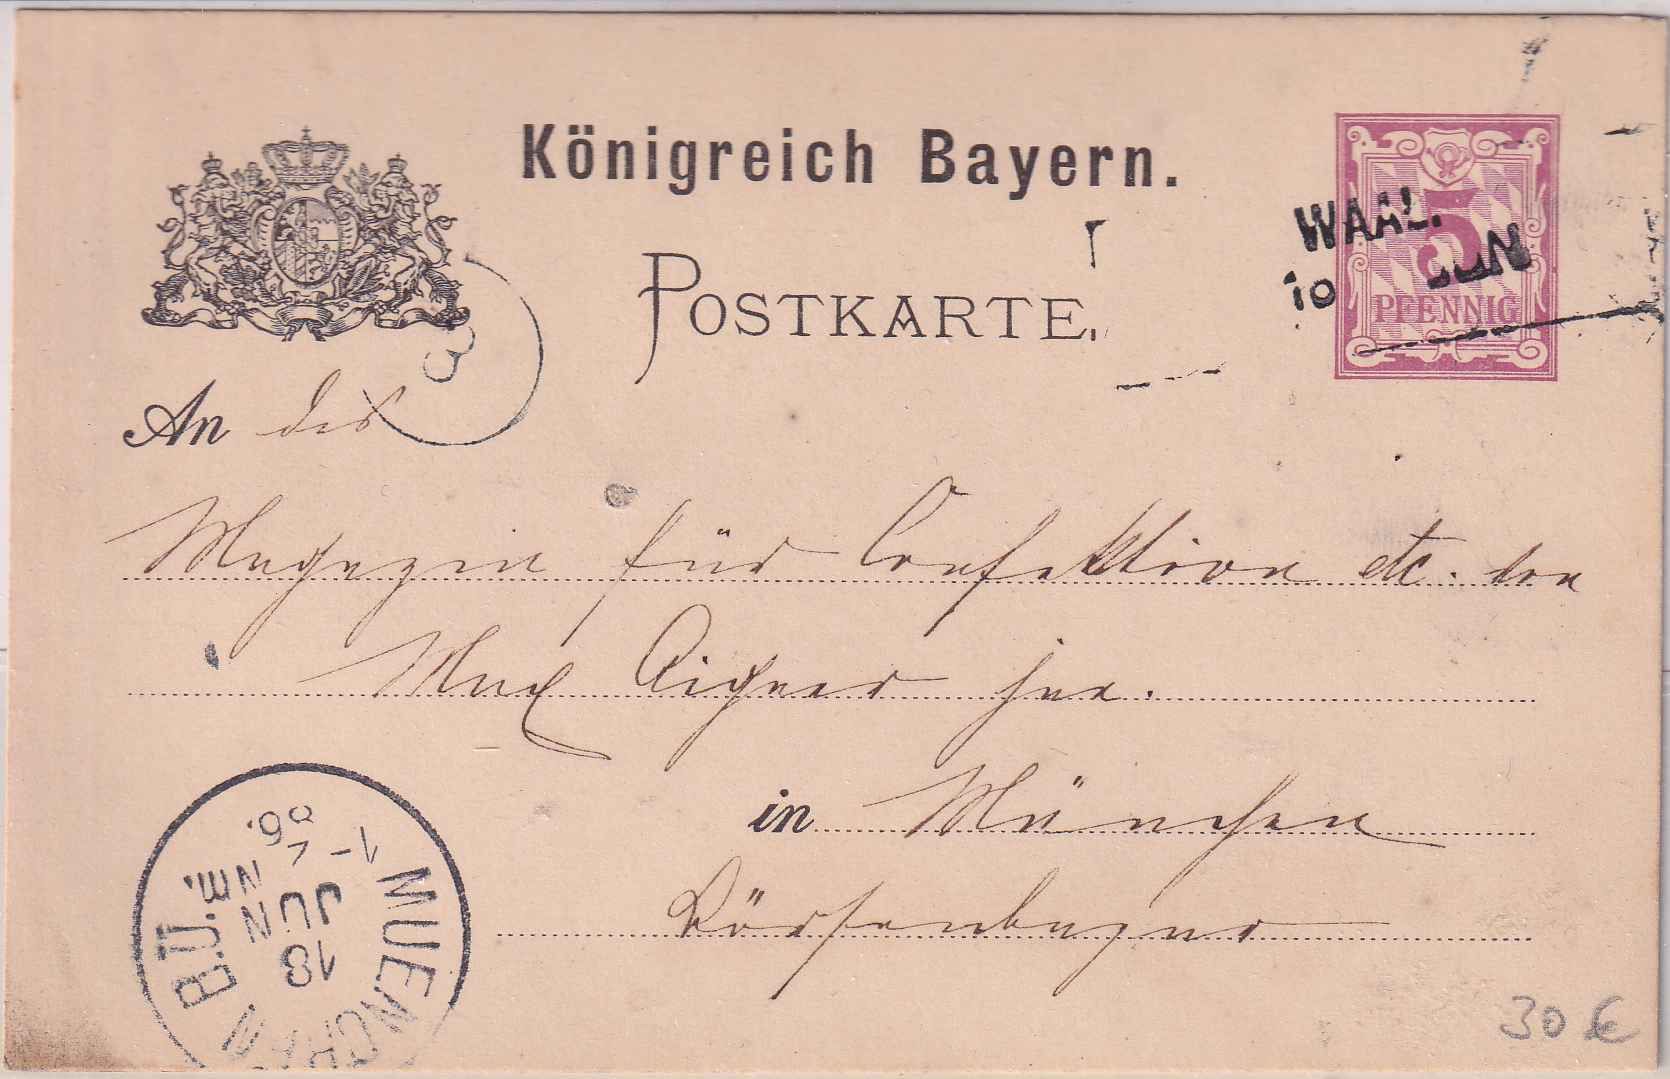 Königreich Bayern.
POSTKARTE.
5
PFENNIG
WAAL.
10 JUN
3
An das
Magazin für Confektion etc. von
Max Aigner jun.
in München
Börsenbazar
MUENCHEN B.Ü.
13
JUN
Nm.
1-
86.
30 €